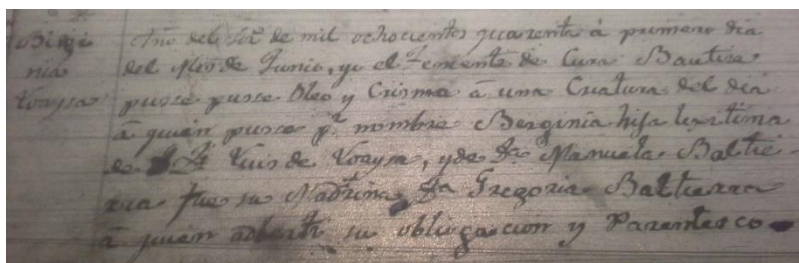 Birji
nia
Loaysa
Año del Sor. de mil ochocientos quarenta á primero dia
del Mes de Junio, yo el Temente de Cura Bautise
puse puse Oleo y Crisma á una Criatura del dia
á quien puse pr. nombre Berginia hija lextima
de Dn. Luis de Loaysa, y de Da. Manuela Baltie
rra fue su Madrina Da. Gregoria Baltierra
á quien adberti su obligacion y Parentesco